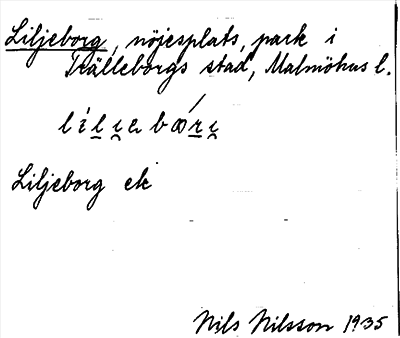 Liljeborg, nöjesplats, park i
Trälleborgs stad, Malmöhus l.
Liljeborg ek
Nils Nilsson 1935